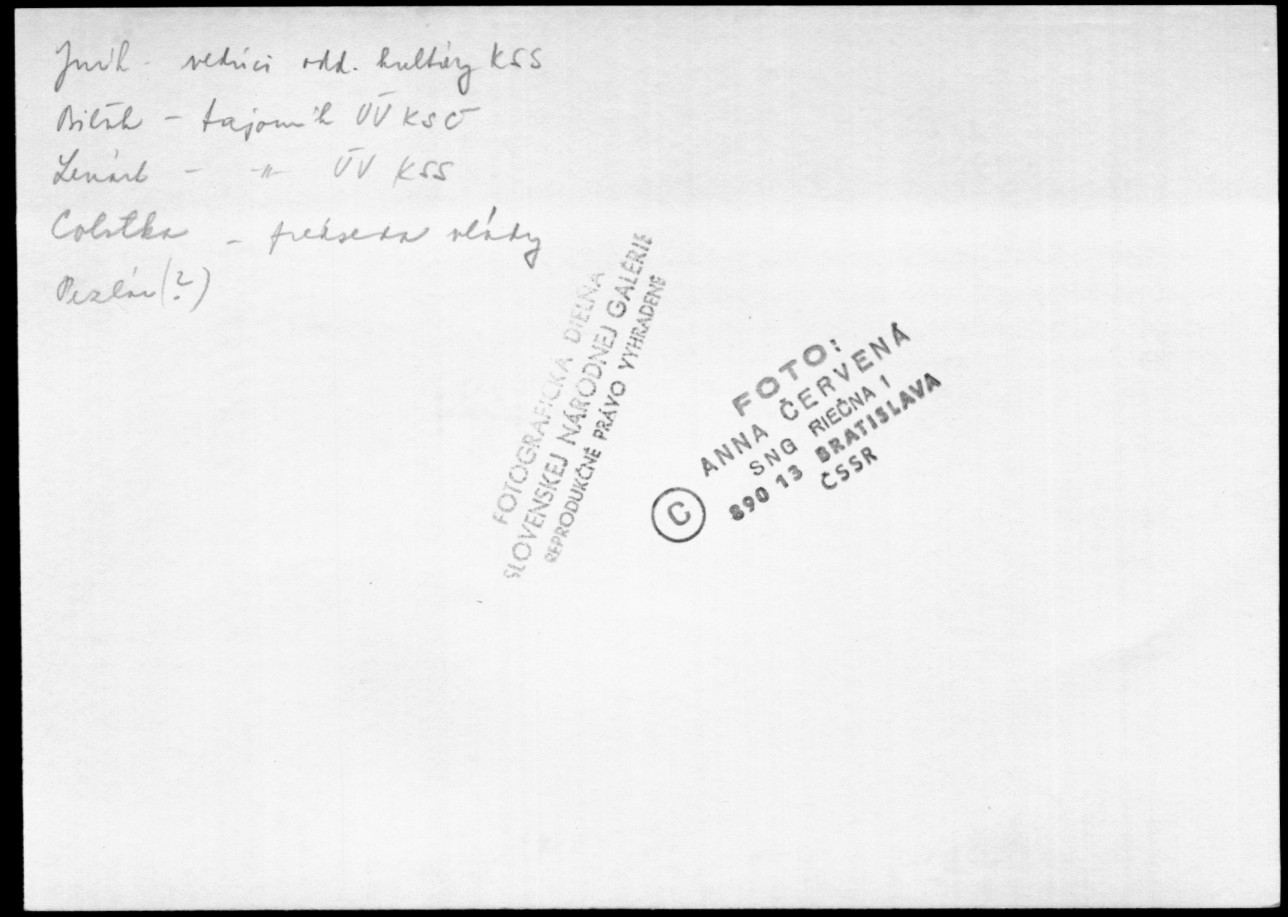 Jurík - vedúci odd. kultúry KSS
Bilák - tajomník ÚV KSČ
Lenárt - -"- ÚV KSS
Colotka - predseda vlády
Pezlár (?)
FOTOGRAFICKÁ DIELŇA
SLOVENSKEJ NÁRODNEJ GALÉRIE
REPRODUKČNÉ PRÁVO VYHRADENÉ
FOTO:
ANNA ČERVENÁ
SNG RIEČNA 1
890 13 BRATISLAVA
ČSSR
©